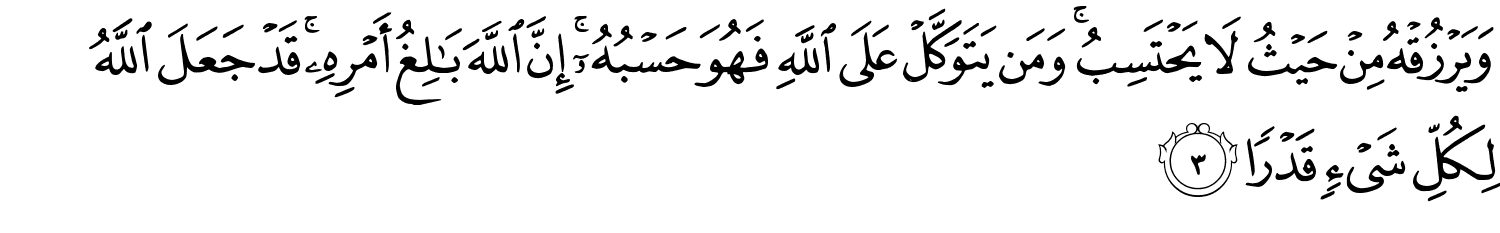 وَيَرْزُقْهُ مِنْ حَيْثُ لَا يَحْتَسِبُ ۚ وَمَن يَتَوَكَّلْ عَلَى ٱللَّهِ فَهُوَ حَسْبُهُۥٓ ۚ إِنَّ ٱللَّهَ بَـٰلِغُ أَمْرِهِۦ ۚ قَدْ جَعَلَ ٱللَّهُ
لِكُلِّ شَىْءٍ قَدْرًا ٣